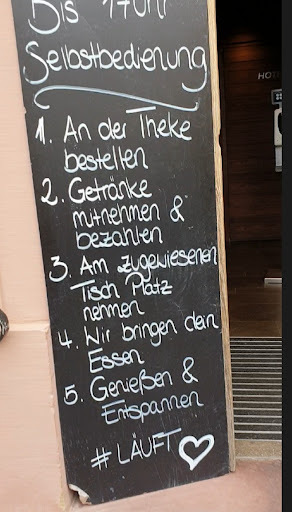 Bis 17 Uhr
Selbstbedienung
1. An der Theke
bestellen
2. Getränke
mitnehmen &
bezahlen
3. Am zugewiesenen
Tisch Platz
nehmen
4. Wir bringen dein
Essen
5. Genießen &
Entspannen
# LÄUFT ♡
HOT